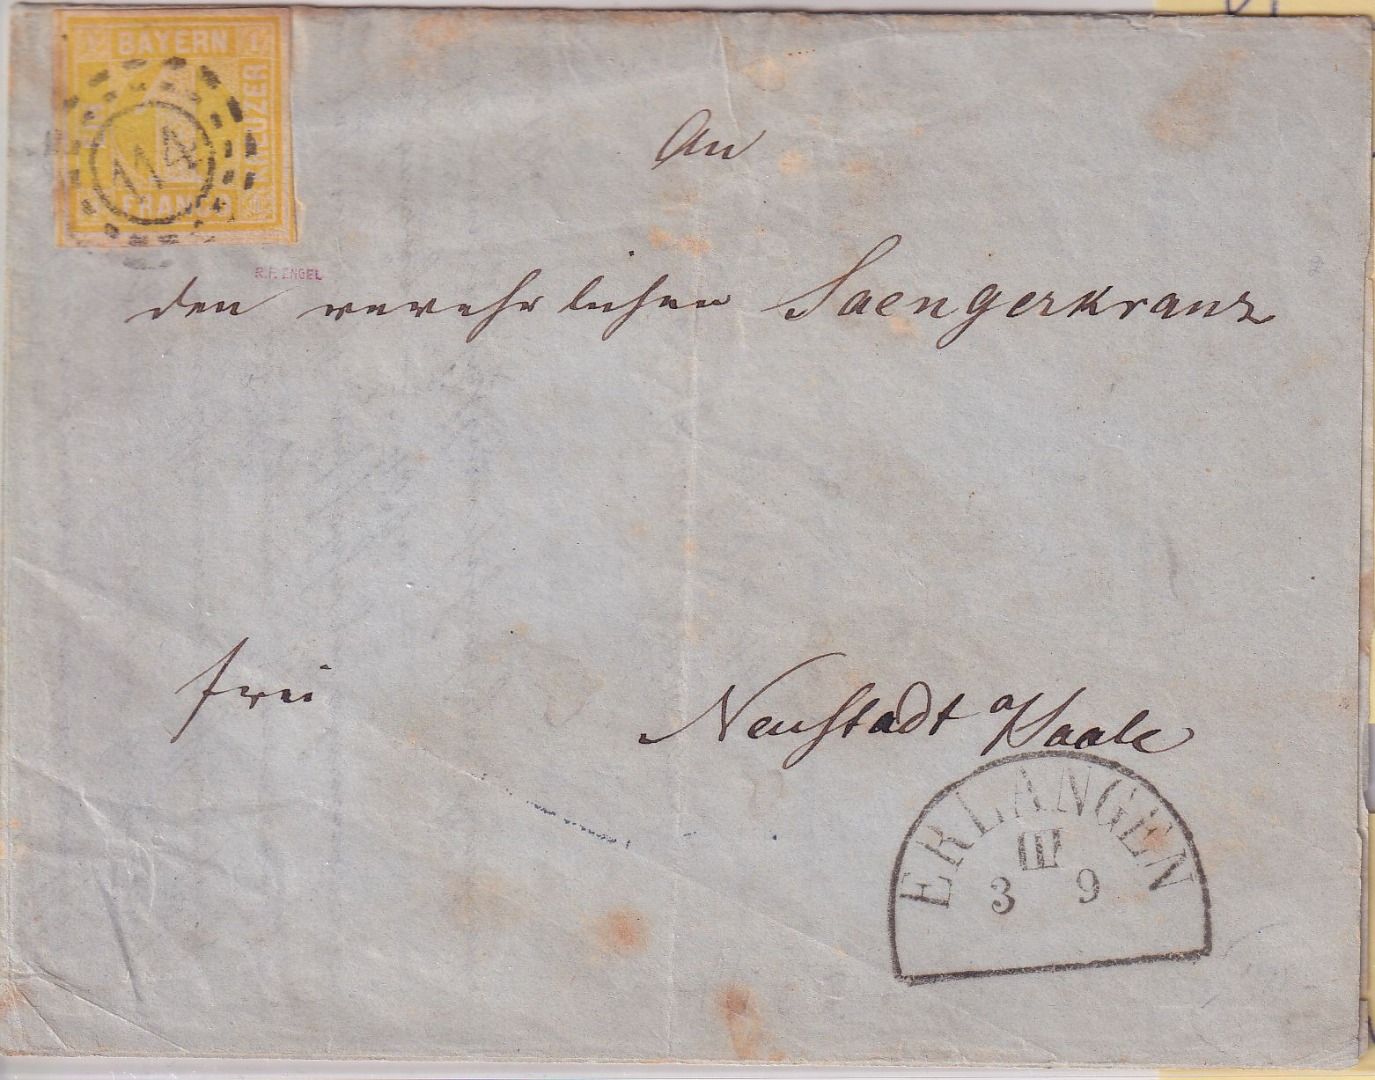 BAYERN
KREUZER
FRANCO
114
R.F. ENGEL
An
den verehrlichen Saengerkranz
frei
Neustadt a/Saale
ERLANGEN
III
3 9